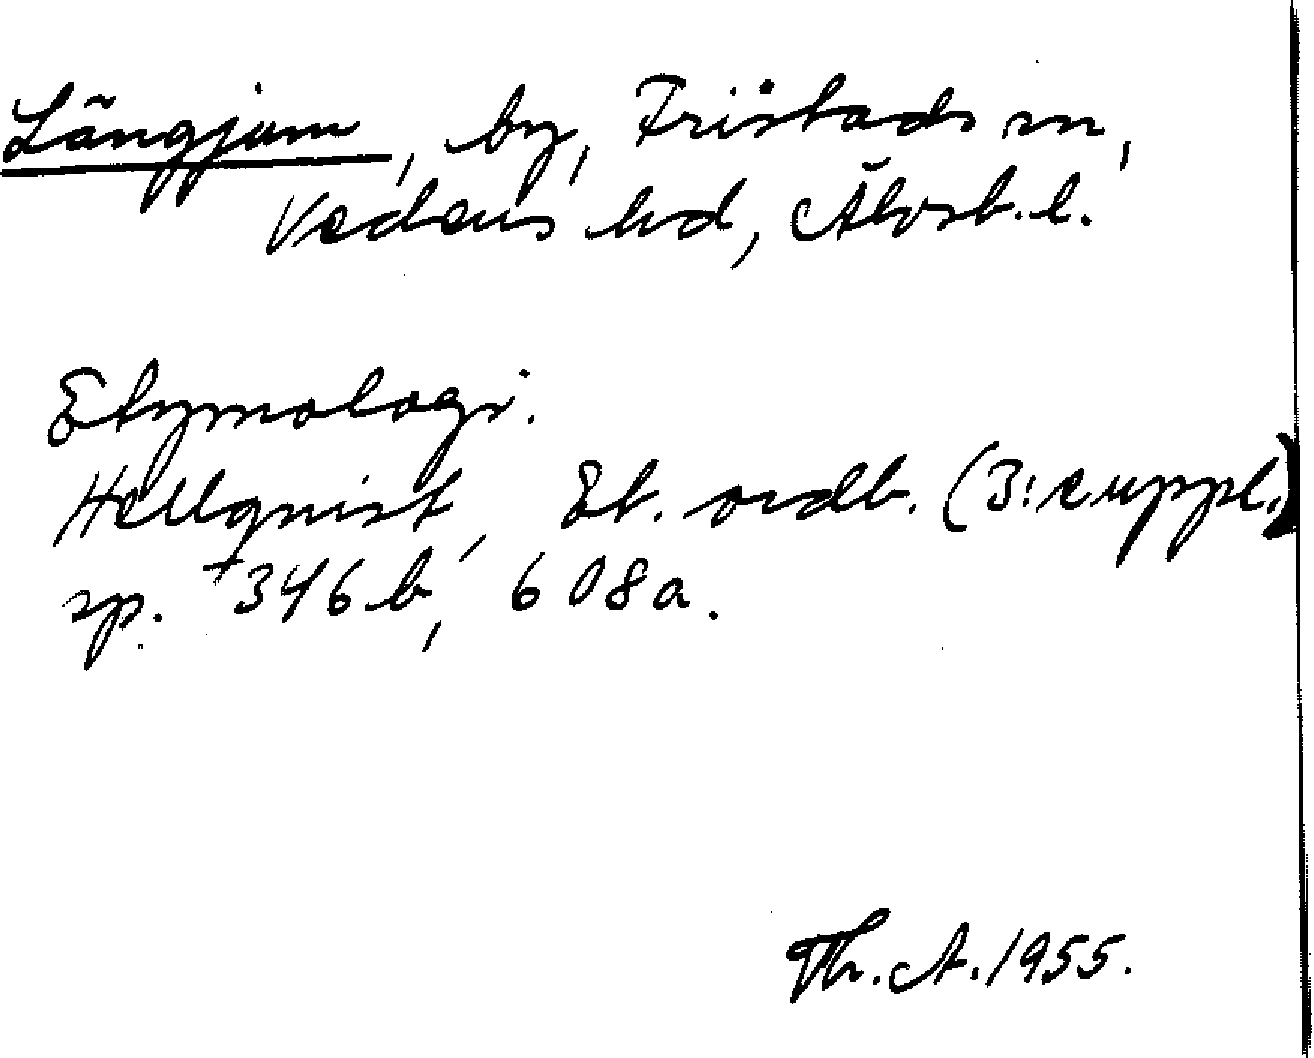 Längjum, by, Fristads sn,
Vedens hd, Älvsb. l.
Etymologi.
Hellquist, Et. ordb. (3: suppl.)
sp. +346 b, 608 a.
Th. A. 1955.